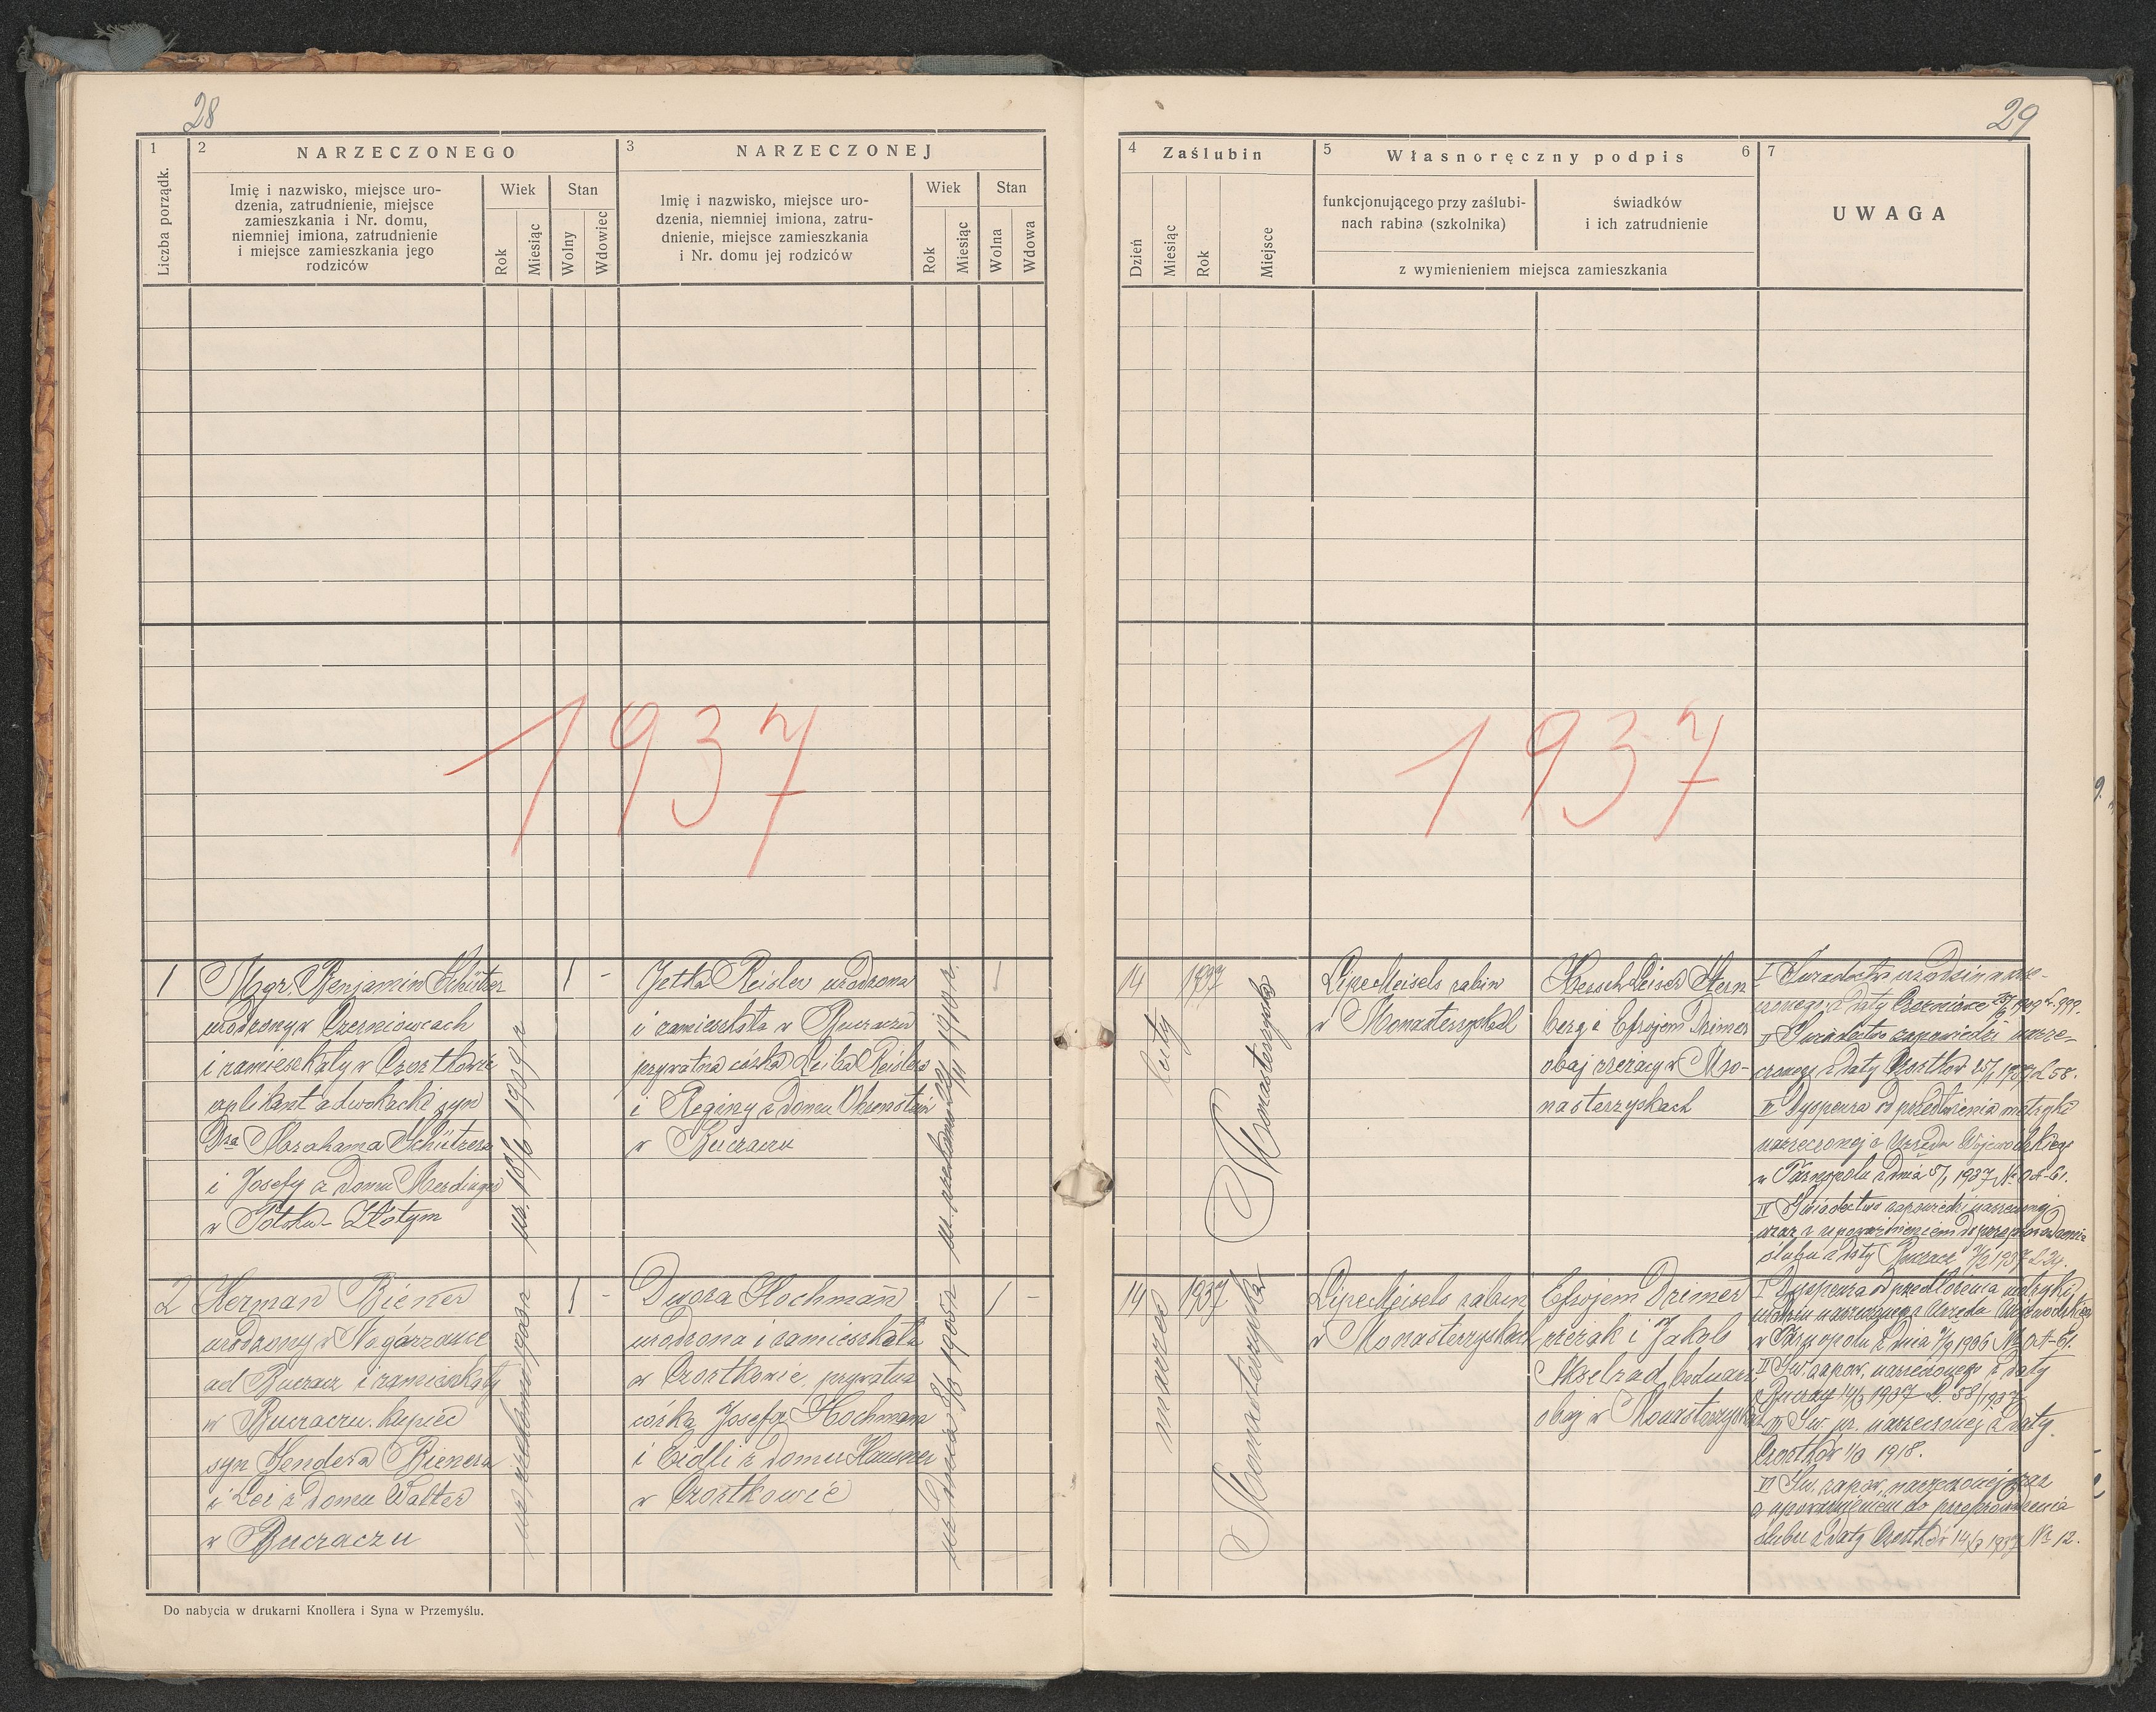 28
1
Liczba porządk.
2
NARZECZONEGO
Imię i nazwisko, miejsce uro-
dzenia, zatrudnienie, miejsce
zamieszkania i Nr. domu,
niemniej imiona, zatrudnienie
i miejsce zamieszkania jego
rodziców
Wiek
Rok
Miesiąc
Stan
Wolny
Wdowiec
3
NARZECZONEJ
Imię i nazwisko, miejsce uro-
dzenia, niemniej imiona, zatru-
dnienie, miejsce zamieszkania
i Nr. domu jej rodziców
Wiek
Rok
Miesiąc
Stan
Wolna
Wdowa
1937
1
Mgr. Benjamin Schützer
urodzony w Czerniowcach
i zamieszkały w Czortkowie
aplikant adwokacki syn
Dra Abrahama Schützera
i Josefy z domu Merdinger
w Potoku-Złotym
1 -
Jetka Reisler urodzona
i zamieszkała w Buczaczu
prywatna córka Leiba Reislera
i Reginy z domu Ohrenstein
w Buczaczu
1
2
Herman Biener
urodzony w Nagórzance
ad Buczacz i zamieszkały
w Buczaczu. kupiec
syn Sendera Bienera
i Lei z domu Walter
w Buczaczu
1 -
Dwora Hochman
urodzona i zamieszkała
w Czortkowie, prywatna
córka Josefa Hochmana
i Eidli z domu Hausner
w Czortkowie
1 -
Do nabycia w drukarni Knollera i Syna w Przemyślu.
29
4
Zaślubin
Dzień
Miesiąc
Rok
Miejsce
5
Własnoręczny podpis
6
funkcjonującego przy zaślubi-
nach rabina (szkolnika)
świadków
i ich zatrudnienie
z wymienieniem miejsca zamieszkania
7
UWAGA
1937
14
luty
1937
Monasterzyska
Lipe Meisels rabin
w Monasterzyskach
Hersch Leisor Stern
berg i Efrojem Drimer
obaj rzezacy w Mo-
nasterzyskach
I Świadectwo urodzin narze-
czonego z daty Czerniowce
II Świadectwo zapowiedzi narze-
czonego z daty Czortków 25/1 1937 L 58.
III Dyspensa od przedłożenia metryki
narzeczonej z Urzędu Wojewódzkiego
w Tarnopolu z dnia 5/1 1937 №
IV Świadectwo zapowiedzi narzeczonej
wraz z upoważnieniem do przeprowadzenia
ślubu z daty Buczacz
14
marzec
1937
Monasterzyska
Lipe Meisels rabin
w Monasterzyskach
Efrojem Drimer
rzezak i Jakob
Akselrad
obaj w Monasterzyskach
I Dyspensa od przedłożenia metryki
urodzin narzeczonego z Urzędu Wojewódzkiego
w Tarnopolu z dnia
II Św. zapow. narzeczonego z daty
Buczacz 14/3 1937 L. 58/1937
III Św. ur. narzeczonej z daty
Czortków 1918.
IV Św. zapow. narzeczonej wraz
z upoważnieniem do przeprowadzenia
ślubu z daty Czortków 14/3 1937 № 12.